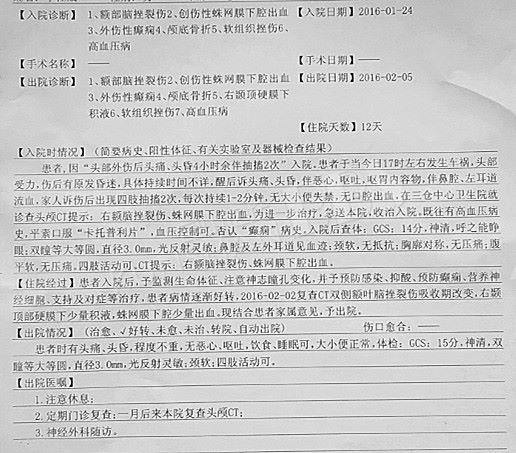 【入院诊断】 1、额部脑挫裂伤2、创伤性蛛网膜下腔出血 【入院日期】2016-01-24
3、外伤性癫痫4、颅底骨折5、软组织挫伤6、
高血压病
【手术名称】 —— 【手术日期】——
【出院诊断】 1、额部脑挫裂伤2、创伤性蛛网膜下腔出血 【出院日期】2016-02-05
3、外伤性癫痫4、颅底骨折5、右颞顶硬膜下
积液6、软组织挫伤7、高血压病
【住院天数】12天
【入院时情况】（简要病史、阳性体征、有关实验室及器械检查结果）
患者,因“头部外伤后头痛、头昏4小时余伴抽搐2次”入院。患者于当今日17时左右发生车祸,头部
受力,伤后有原发昏迷,具体持续时间不详,醒后诉头痛、头昏,伴恶心,呕吐,呕胃内容物,伴鼻腔、左耳道
流血,家人诉伤后出现四肢抽搐2次,每次持续1-2分钟,无大小便失禁,无口腔出血,在三仓中心卫生院就
诊查头颅CT提示：右额脑挫裂伤、蛛网膜下腔出血,为进一步治疗,急送本院,收治入院。既往有高血压病
史,平素口服“卡托普利片”,血压控制可。否认“癫痫”病史。入院后查体：GCS：14分,神清,呼之能睁
眼;双瞳等大等圆,直径3.0mm,光反射灵敏;鼻腔及左外耳道见血迹;颈软,无抵抗;胸廓对称,无压痛;腹
平软,无压痛。四肢活动可。CT提示：右额脑挫裂伤、蛛网膜下腔出血。
【住院经过】患者入院后,予监测生命体征、注意神志瞳孔变化,并予预防感染、抑酸、预防癫痫、营养神
经细胞、支持及对症等治疗,患者病情逐渐好转,2016-02-02复查CT双侧额叶脑挫裂伤吸收期改变,右颞
顶部硬膜下少量积液,蛛网膜下腔少量出血。现结合患者家属意见,予出院。
【出院情况】（治愈、√好转、未愈、未治、转院、自动出院） 伤口愈合：——
患者时有头痛、头昏,程度不重,无恶心、呕吐,饮食、睡眠可,大小便正常,体检：GCS：15分,神清,双
瞳等大等圆,直径3.0mm,光反射灵敏;颈软;四肢活动可。
【出院医嘱】
1.注意休息;
2.定期门诊复查:一月后来本院复查头颅CT;
3.神经外科随访。